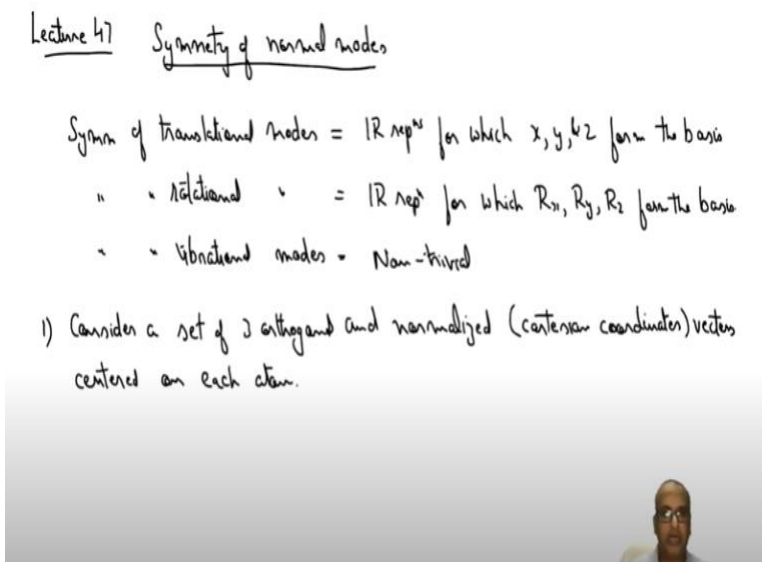 Lecture 47 Symmetry of normal modes
Symm of translational modes = IR repns for which x, y, & z form the basis
" " rotational " = IR repn for which Rx, Ry, Rz form the basis
" " vibrational modes = Non-trivial
1) Consider a set of 3 orthogonal and normalized (cartesian coordinates) vectors
centered on each atom.